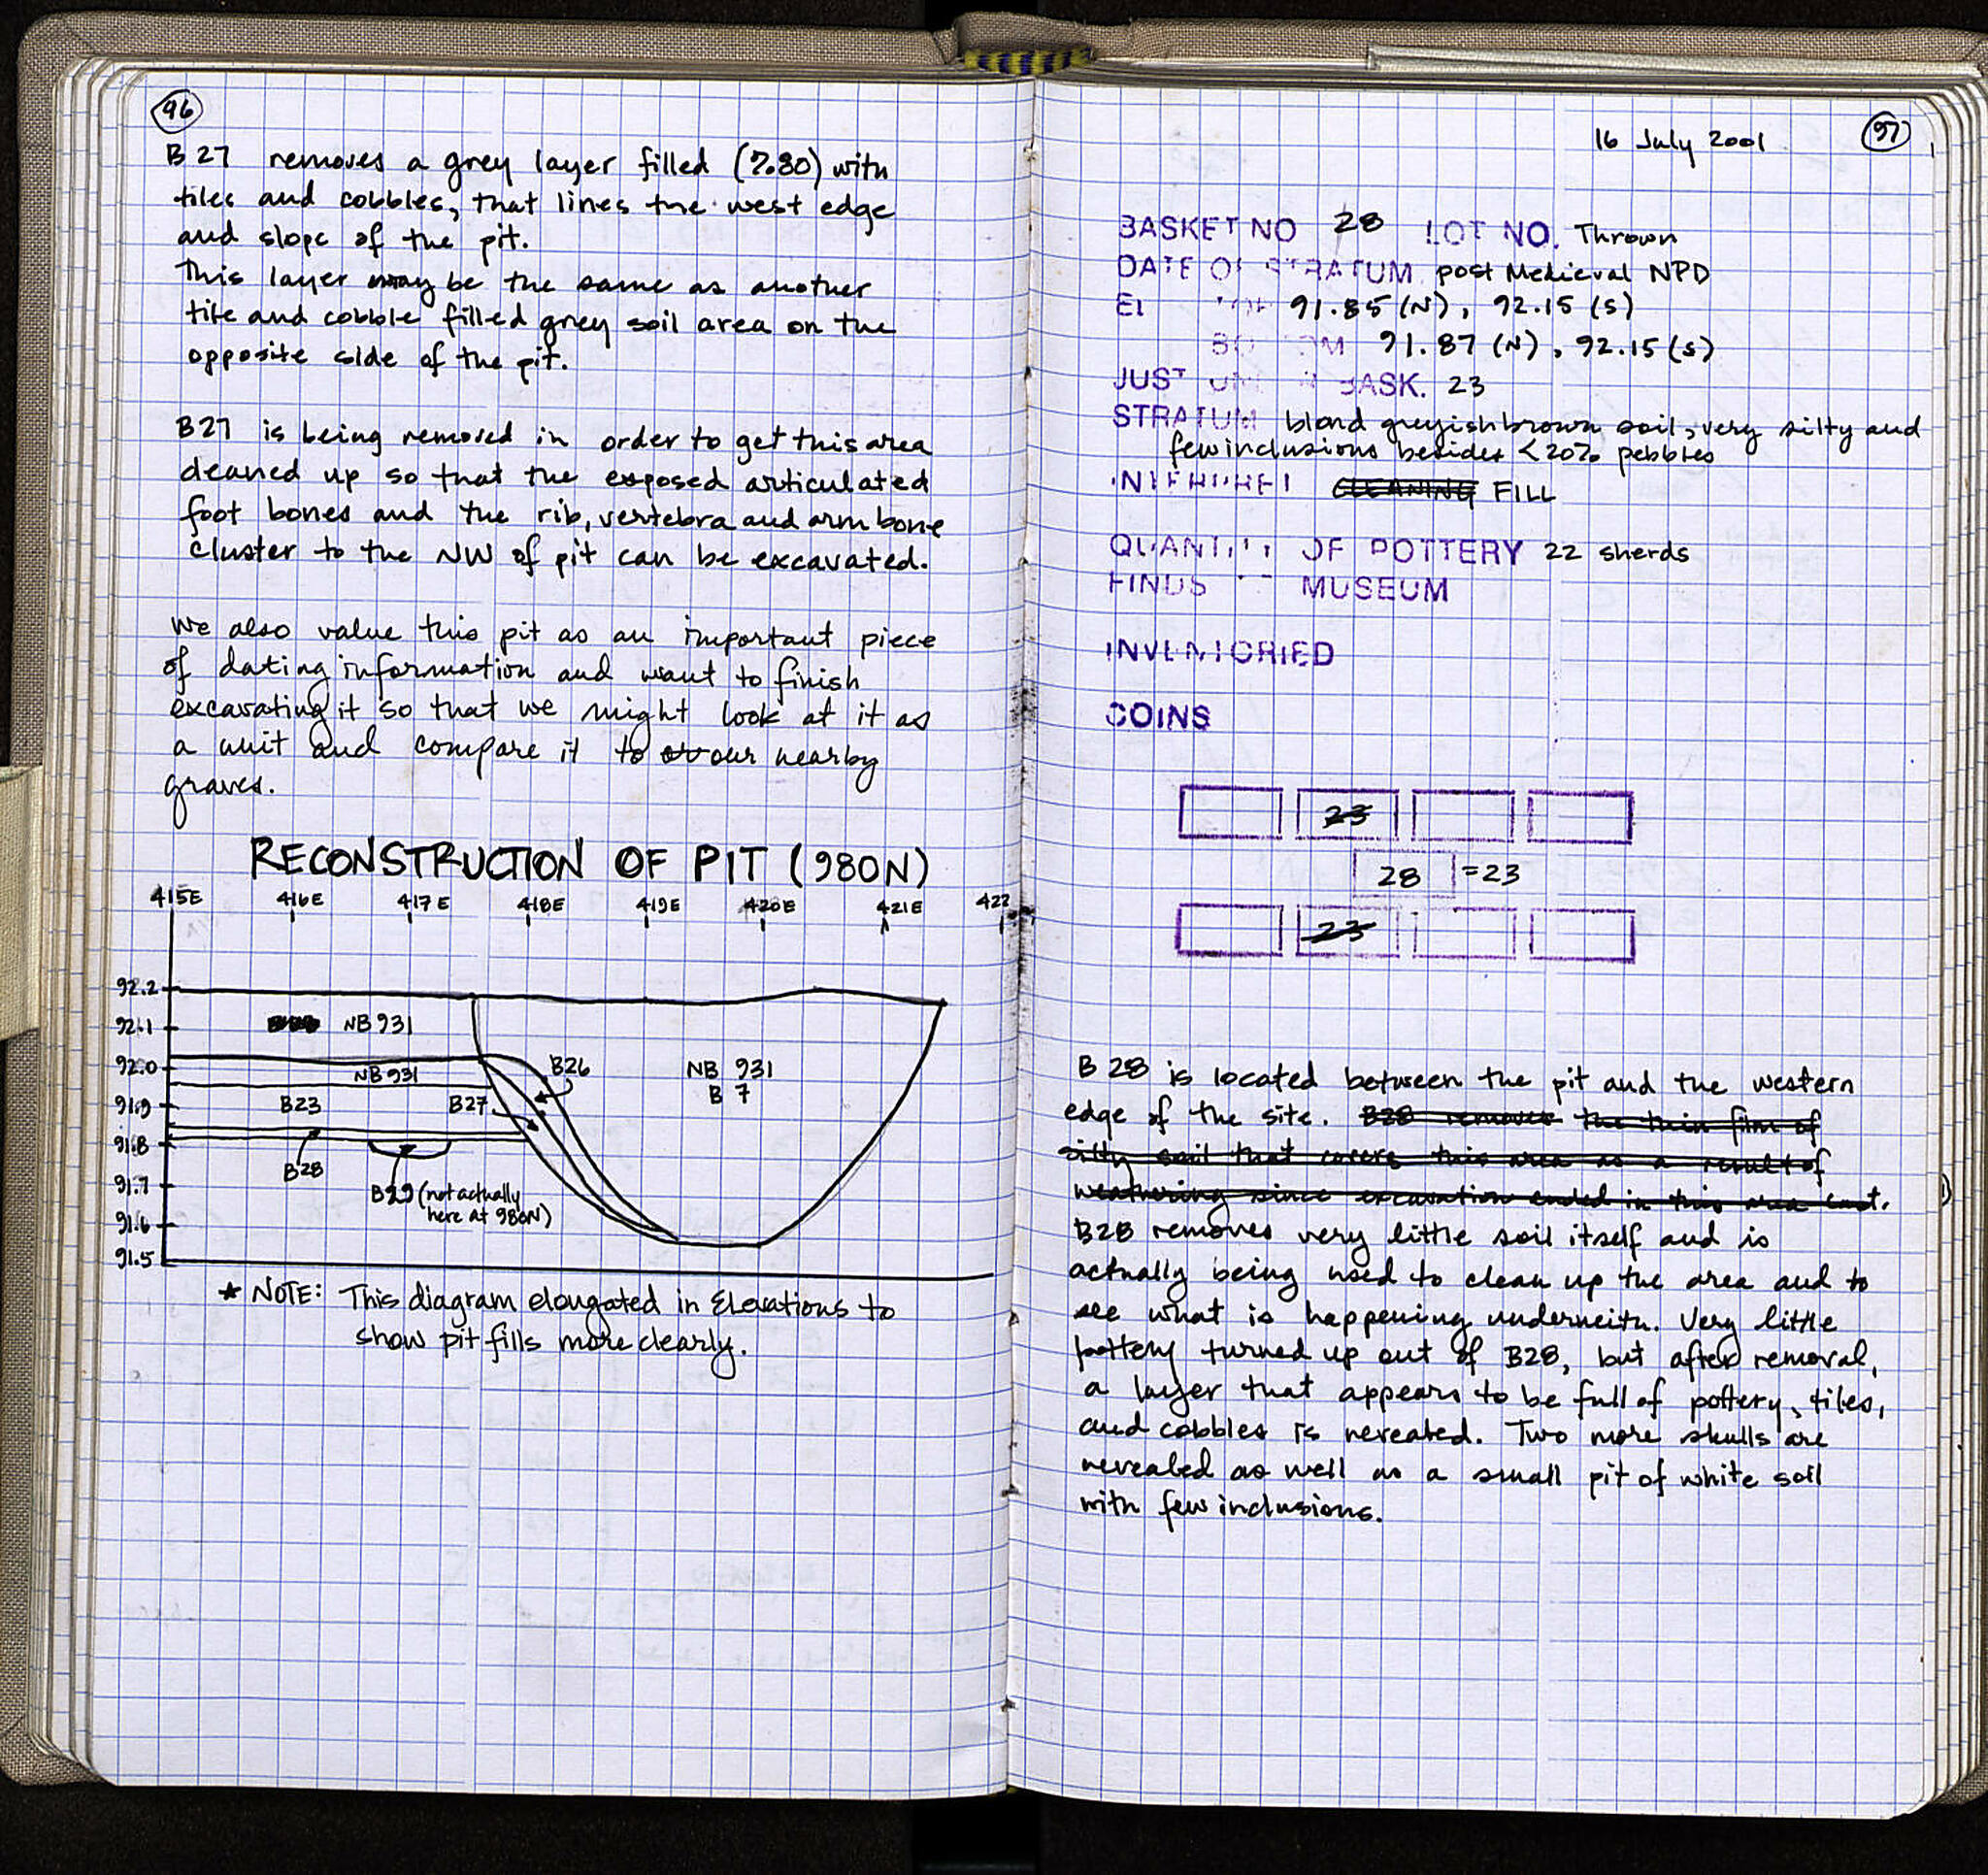 96
B 27 removes a grey layer filled (7.80) with
tiles and cobbles, that lines the west edge
and slope of the pit.
This layer may be the same as another
tile and cobble filled grey soil area on the
opposite side of the pit.
B27 is being removed in order to get this area
cleaned up so that the exposed articulated
foot bones and the rib, vertebra and arm bone
cluster to the NW of pit can be excavated.
We also value this pit as an important piece
of dating information and want to finish
excavating it so that we might look at it as
a unit and compare it to our nearby
graves.
RECONSTRUCTION OF PIT (980N)
415E 416E 417E 418E 419E 420E 421E 422
92.2
92.1 NB 931
92.0 NB 931 B26 NB 931
B 7
91.9 B23 B27
91.8
B28
91.7 B29 (not actually
here at 980N)
91.6
91.5
* NOTE: This diagram elongated in Elevations to
show pit fills more clearly.
16 July 2001 97
BASKET NO 28 LOT NO. Thrown
DATE OF STRATUM post Medieval NPD
91.85 (N), 92.15 (S)
91.87 (N), 92.15 (S)
BASK. 23
STRATUM blond greyish brown soil, very silty and
few inclusions besides <20% pebbles
CLEANING FILL
QUANTITY OF POTTERY 22 sherds
FINDS MUSEUM
INVENTORIED
COINS
23
28 =23
23
B 28 is located between the pit and the western
edge of the site. B28 removes the thin film of
silty soil that covers this area as a result of
weathering since excavation ended in this area last.
B28 removes very little soil itself and is
actually being used to clean up the area and to
see what is happening underneith. Very little
pottery turned up out of B28, but after removal,
a layer that appears to be full of pottery, tiles,
and cobbles is revealed. Two more skulls are
revealed as well as a small pit of white soil
with few inclusions.